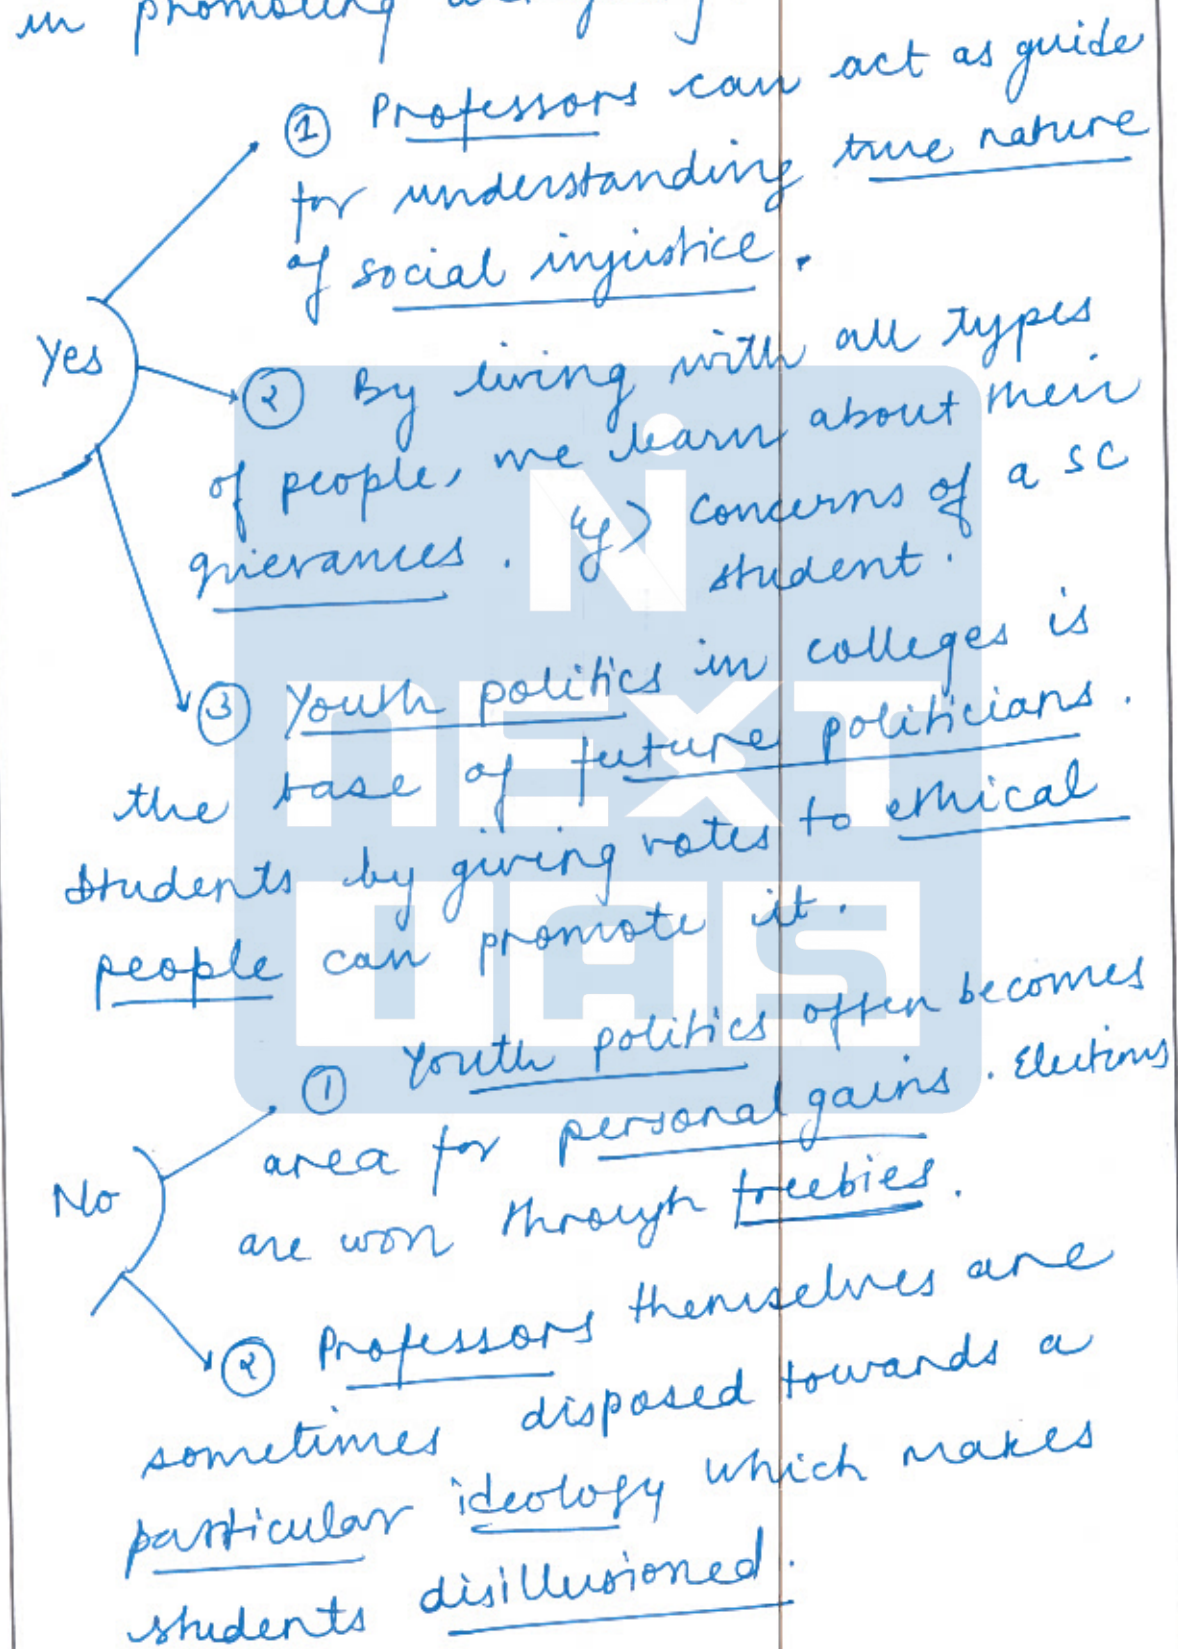 in promoting
① Professors can act as guide
for understanding true nature
of social injustice.
Yes
② By living with all types
of people, we learn about their
grievances. eg) concerns of a SC
student.
③ Youth politics in colleges is
the base of future politicians.
Students by giving votes to ethical
people can promote it.
① Youth politics often becomes
area for personal gains. Elections
No
are won through freebies.
② Professors themselves are
sometimes disposed towards a
particular ideology which makes
students disillusioned.
NEXT
IAS